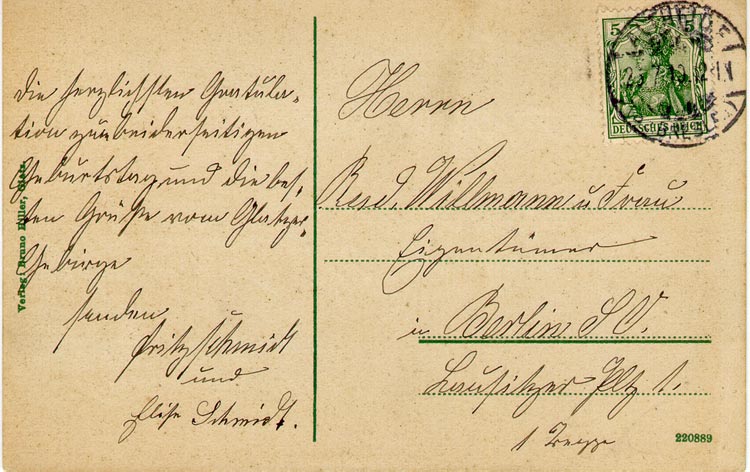 Die herzlichsten Gratula-
tion zum beiderseitigen
Geburtstag und die bes-
ten Grüße vom Glatzer
Gebirge
senden
Fritz Schmidt
und
Elise Schmidt.
Verlag: Bruno Hiller, Glatz.
5 5
DEUTSCHES REICH
Herrn
Willmann u Frau
Eigentümer
in Berlin S.O.
Lausitzer Pltz 1.
1 Treppe
220889